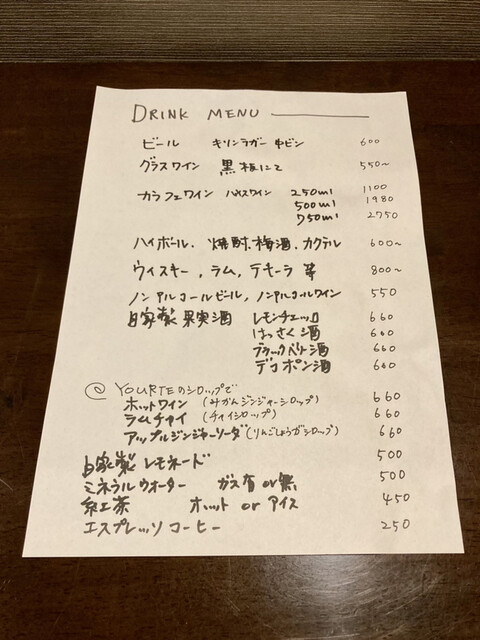 DRINK MENU
ビール キリンラガー 中ビン 600
グラスワイン 黒板にて 550~
カラフェワイン ハウスワイン 250ml 1100
500ml 1980
750ml 2750
ハイボール、焼酎、梅酒、カクテル 600~
ウィスキー、ラム、テキーラ 等 800~
ノンアルコールビール、ノンアルコールワイン 550
自家製果実酒 レモンチェッロ 660
はっさく酒 660
ブラックベリー酒 660
デコポン酒 660
@YOURTEのシロップで
ホットワイン (みかんジンジャーシロップ) 660
ラムチャイ (チャイシロップ) 660
アップルジンジャーソーダ (りんごしょうがシロップ) 660
自家製レモネード 500
ミネラルウォーター ガス有or無 500
紅茶 ホット or アイス 450
エスプレッソコーヒー 250